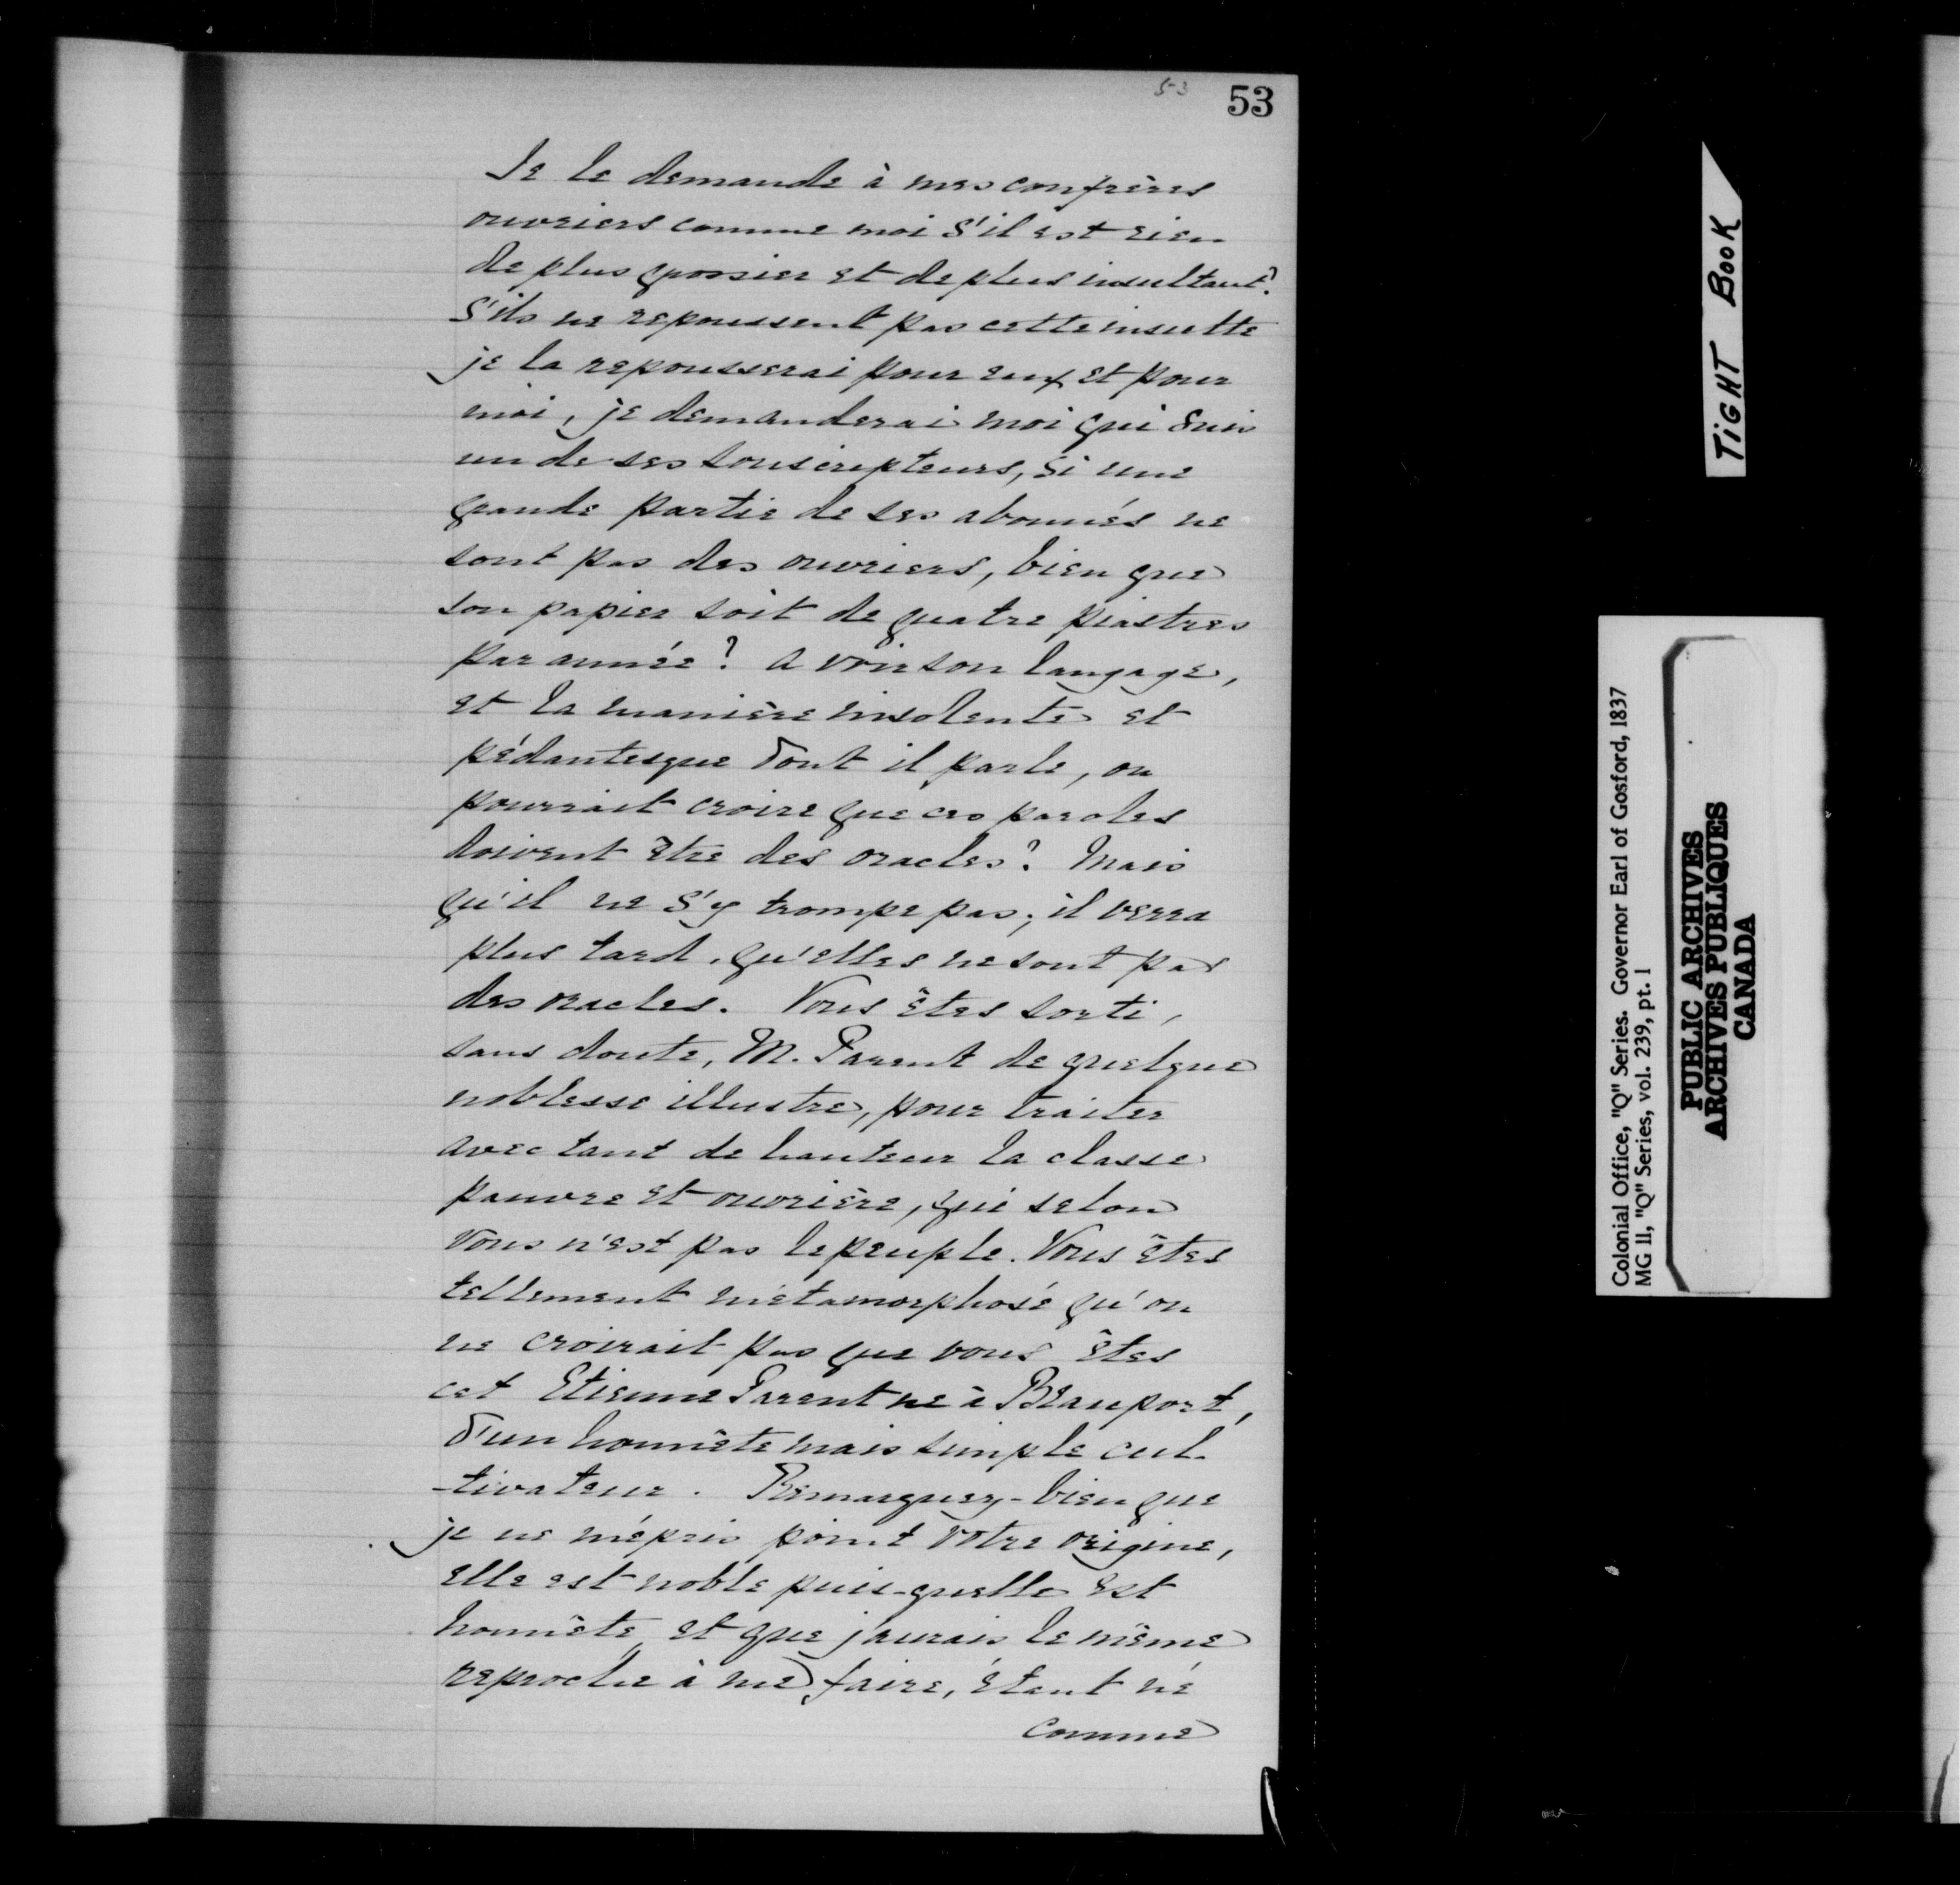 53
53
Je le demande à mes confrères
ouvriers comme moi s'il est rien
de plus grossier et de plus insultant?
S'ils ne repoussent pas cette insulte
je la repousserai pour eux et pour
moi, je demanderai moi qui suis
un de ses souscripteurs, si une
grande partie de ses abonnés ne
sont pas des ouvriers, bien que
son papier soit de quatre piastres
par année? A voir son langage,
et la manière insolente et
pédantesque dont il parle, on
pourrait croire que ces paroles
doivent être des oracles? Mais
qu'il ne s'y trompe pas; il verra
plus tard, qu'elles ne sont pas
des oracles. Vous êtes sorti,
sans doute, M. Parent de quelque
noblesse illustre, pour traiter
avec tant de hauteur la classe
pauvre et ouvrière, qui selon
vous n'est pas le peuple. Vous êtes
tellement métamorphosé qu'on
ne croirait pas que vous êtes
cet Etienne Parent né à Beauport,
d'un honnête mais simple cul-
-tivateur. Remarquez-bien que
je ne mépris point votre origine,
elle est noble puis-quelle est
honnête, et que j'aurais le même
reproche à me faire, étant né
comme
TIGHT BOOK
Colonial Office, "Q" Series. Governor Earl of Gosford, 1837
MG 11, "Q" Series, vol. 239, pt. 1
PUBLIC ARCHIVES
ARCHIVES PUBLIQUES
CANADA